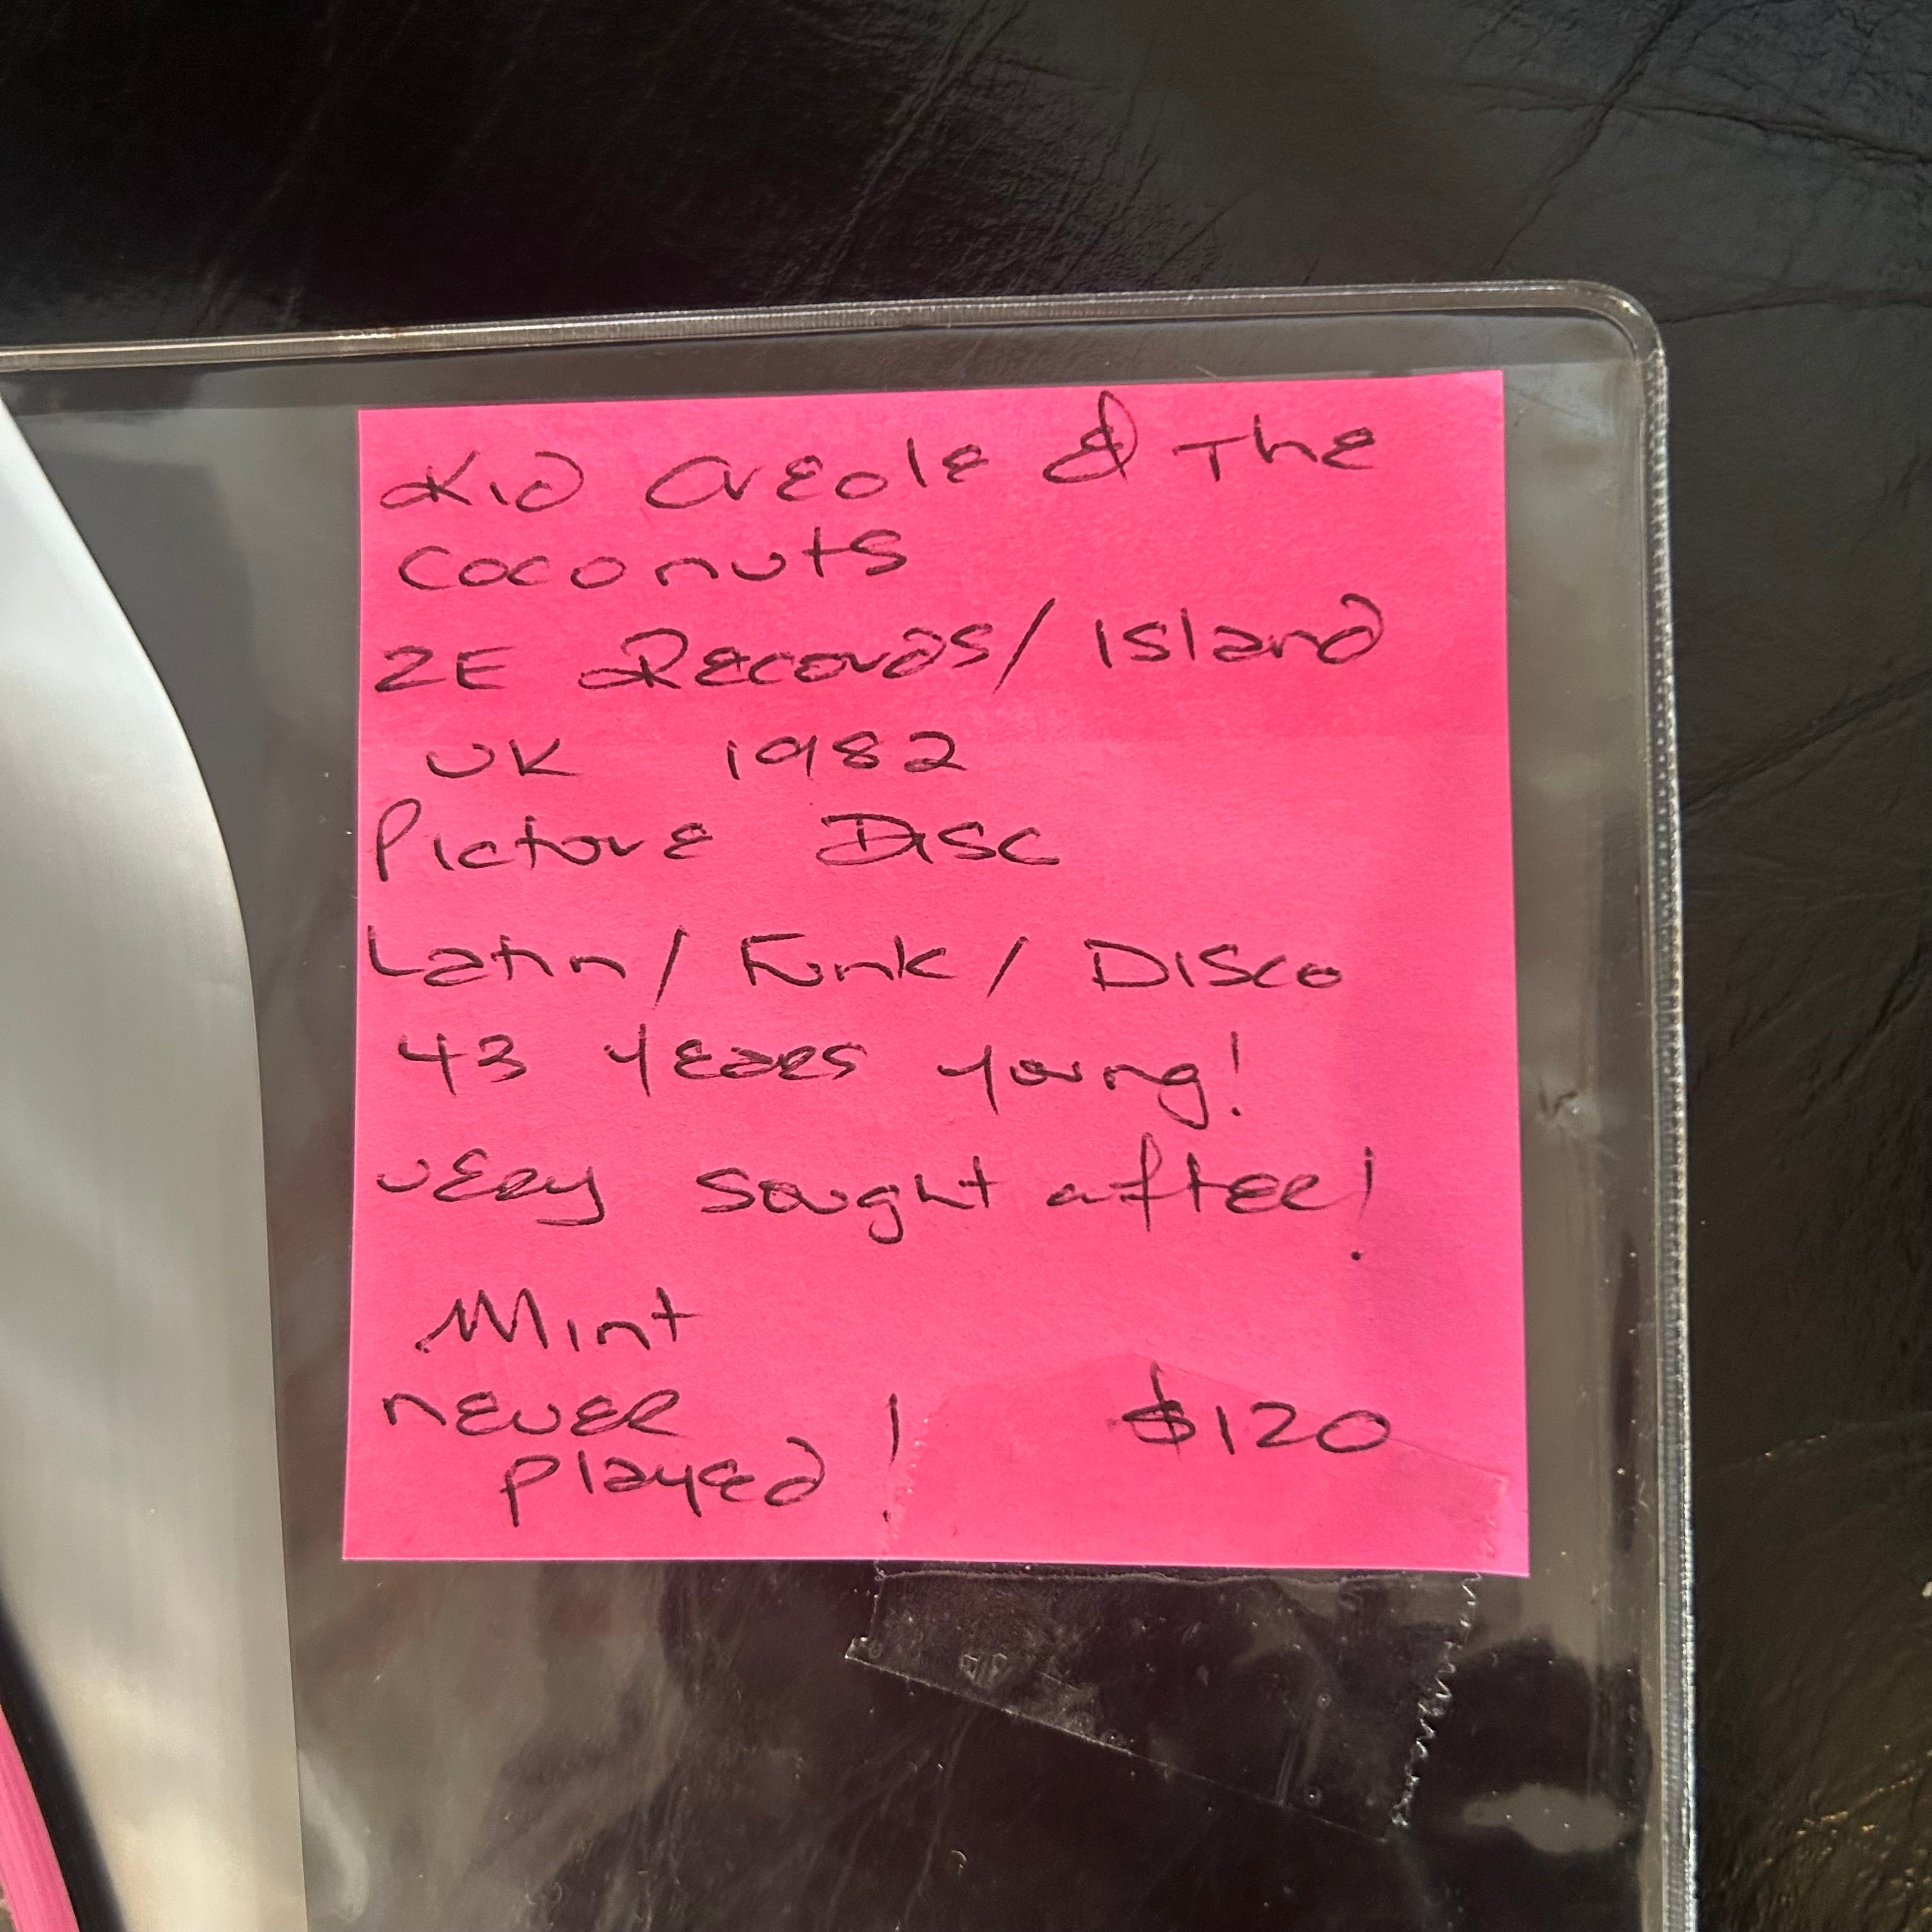 Kid Creole & The
Coconuts
ZE Records/ Island
UK 1982
Picture Disc
Latin / Funk / Disco
43 years young!
very sought after!
Mint
never
played! $120